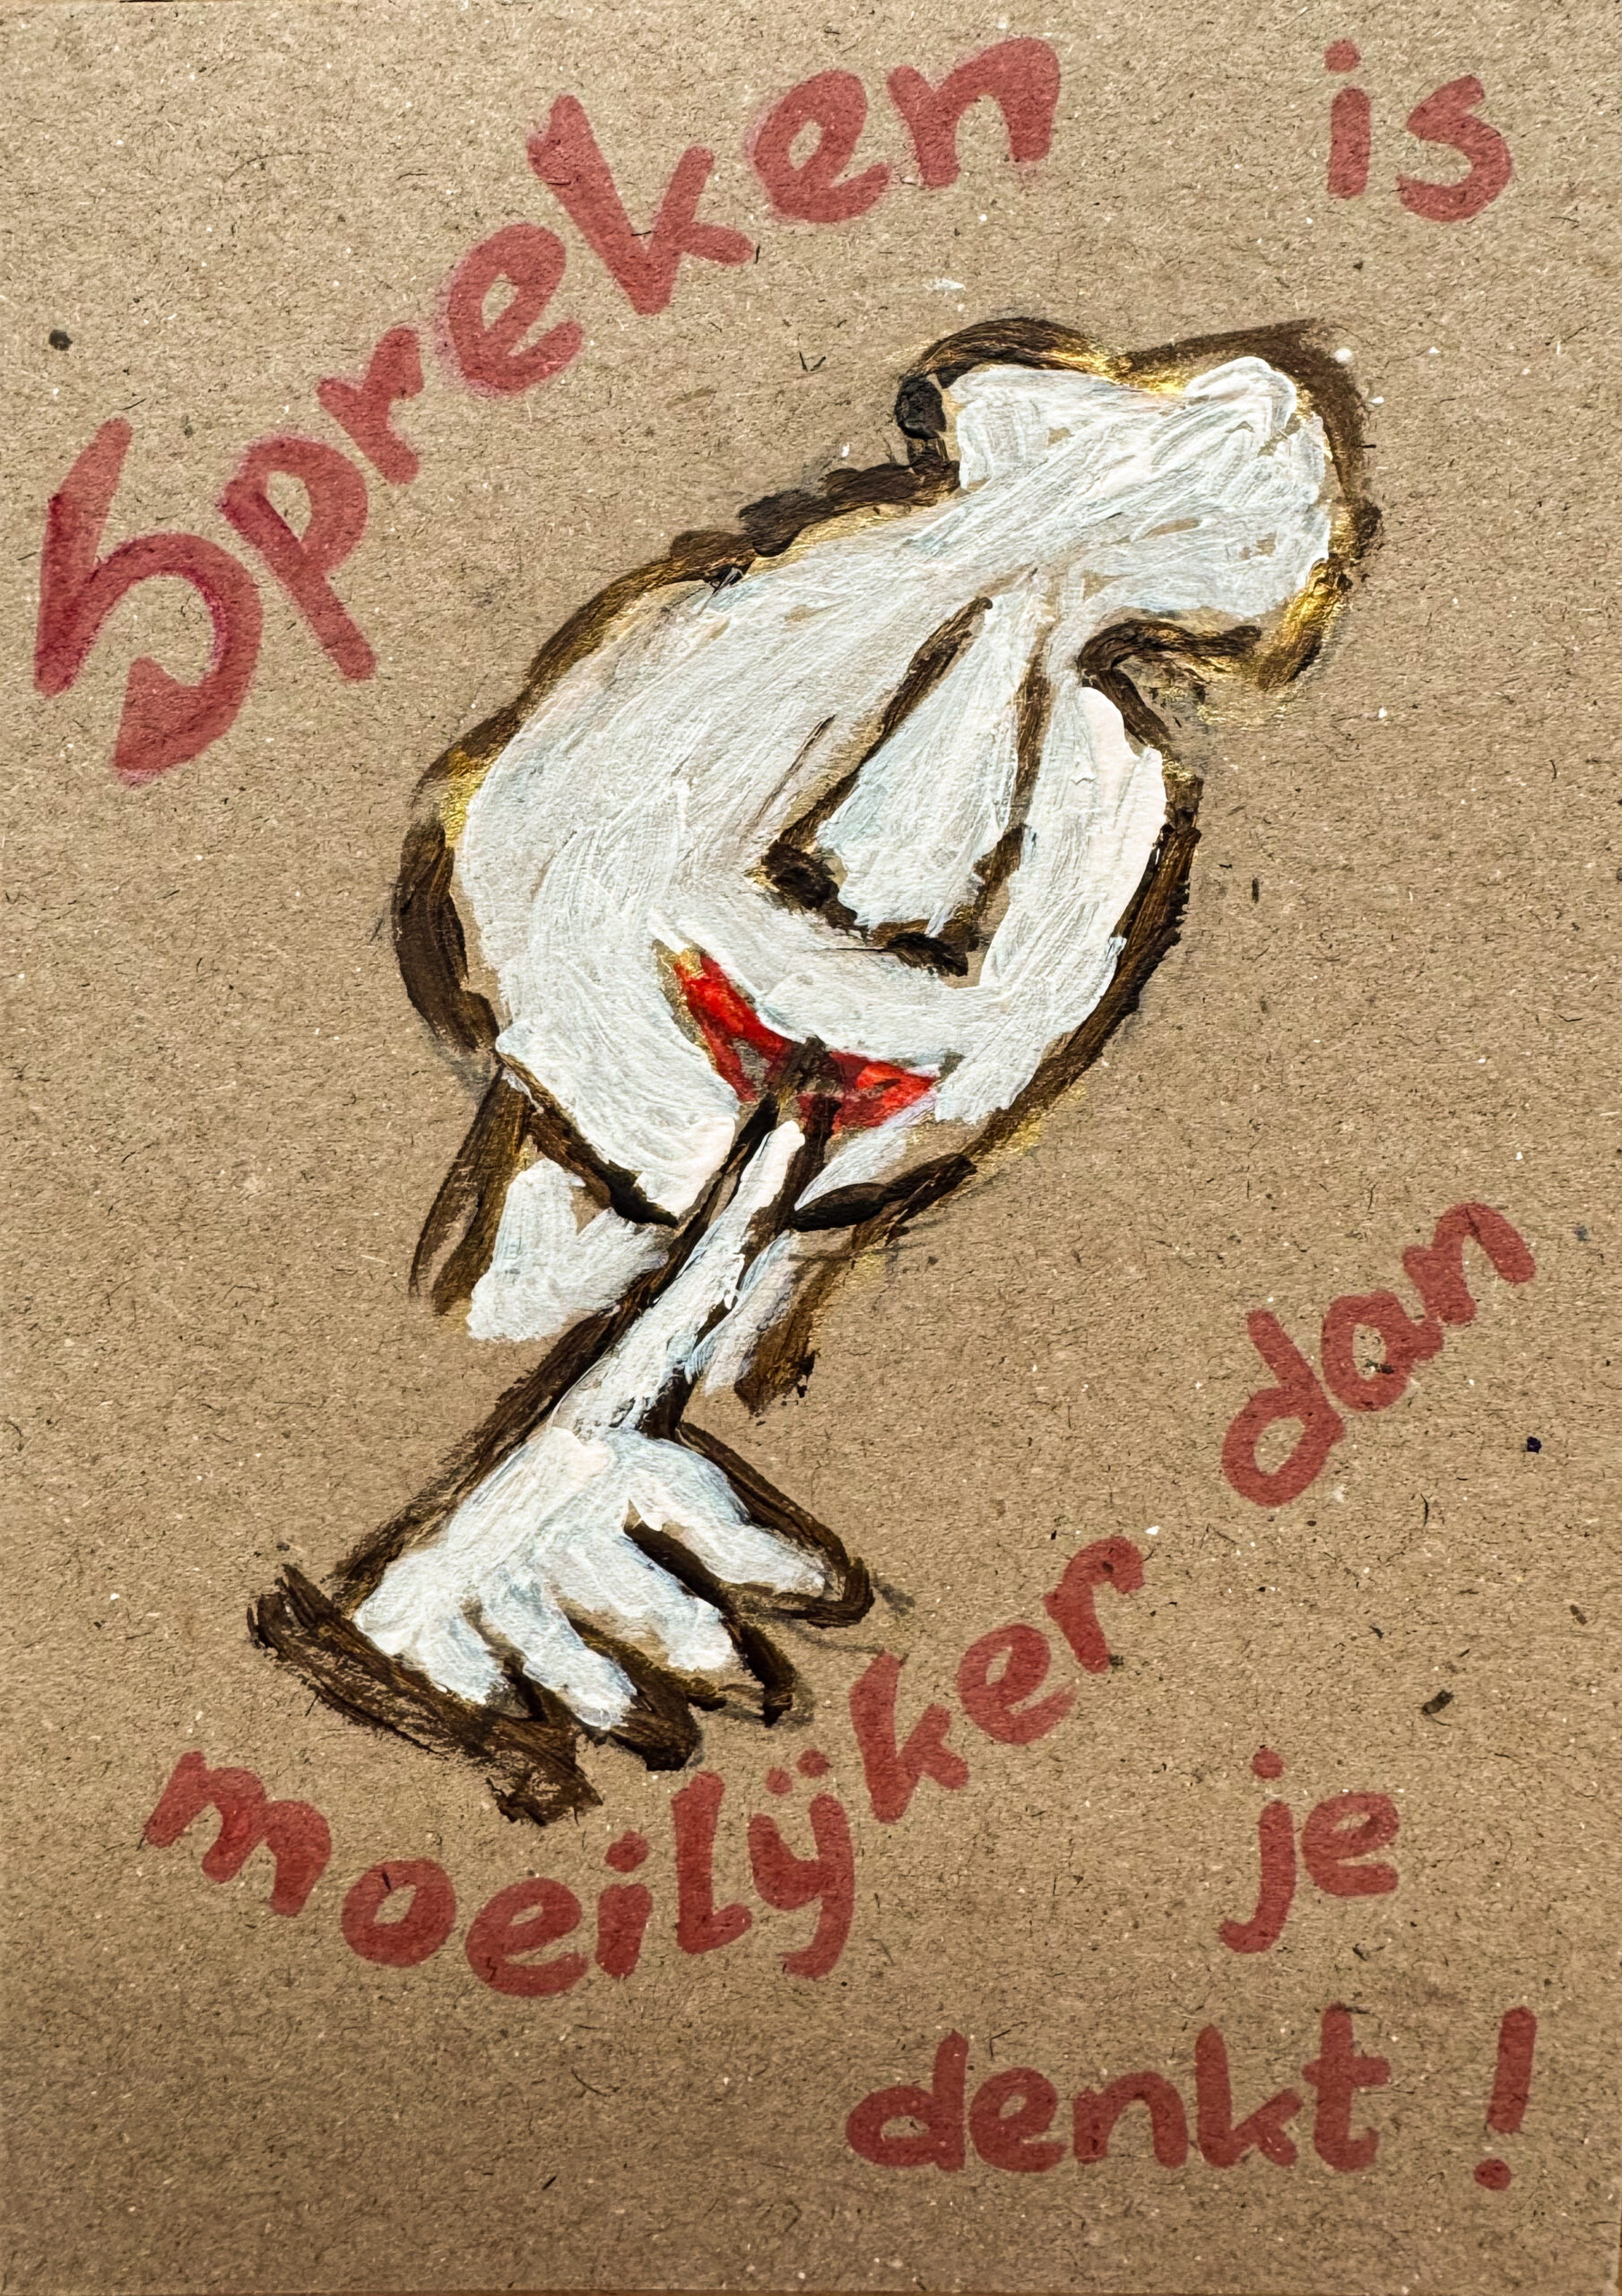 Spreken is
moeilijker dan
je
denkt!